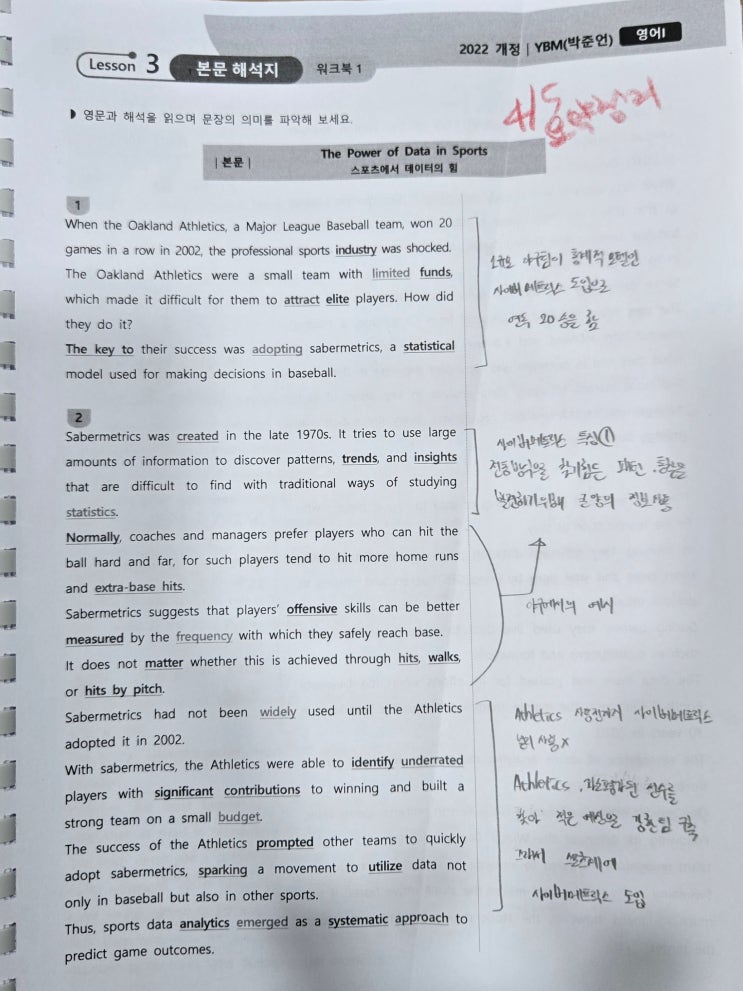 Lesson 3 본문 해석지 워크북 1
2022 개정 | YBM(박준언) 영어I
▶ 영문과 해석을 읽으며 문장의 의미를 파악해 보세요.
요약정리
| 본문 | The Power of Data in Sports
스포츠에서 데이터의 힘
1
When the Oakland Athletics, a Major League Baseball team, won 20
games in a row in 2002, the professional sports industry was shocked.
The Oakland Athletics were a small team with limited funds,
which made it difficult for them to attract elite players. How did
they do it?
The key to their success was adopting sabermetrics, a statistical
model used for making decisions in baseball.
소규모 야구팀이 통계적 모델인
사이버메트릭스 도입으로
연속 20승을 함
2
Sabermetrics was created in the late 1970s. It tries to use large
amounts of information to discover patterns, trends, and insights
that are difficult to find with traditional ways of studying
statistics.
사이버메트릭스 특징①
전통방식으로 찾기힘든 패턴, 통찰을
발견하기위해 큰양의 정보사용
Normally, coaches and managers prefer players who can hit the
ball hard and far, for such players tend to hit more home runs
and extra-base hits.
Sabermetrics suggests that players' offensive skills can be better
measured by the frequency with which they safely reach base.
It does not matter whether this is achieved through hits, walks,
or hits by pitch.
야구에서의 예시
Sabermetrics had not been widely used until the Athletics
adopted it in 2002.
With sabermetrics, the Athletics were able to identify underrated
players with significant contributions to winning and built a
strong team on a small budget.
The success of the Athletics prompted other teams to quickly
adopt sabermetrics, sparking a movement to utilize data not
only in baseball but also in other sports.
Thus, sports data analytics emerged as a systematic approach to
predict game outcomes.
Athletics 사용전까지 사이버메트릭스
널리 사용 x
Athletics, 과소평가된 선수를
찾아 적은 예산으로 강한팀 구축
사이버메트릭스 도입